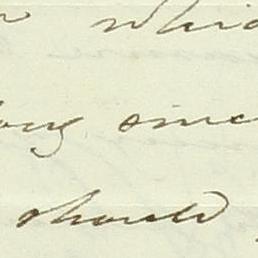 which
long since
should